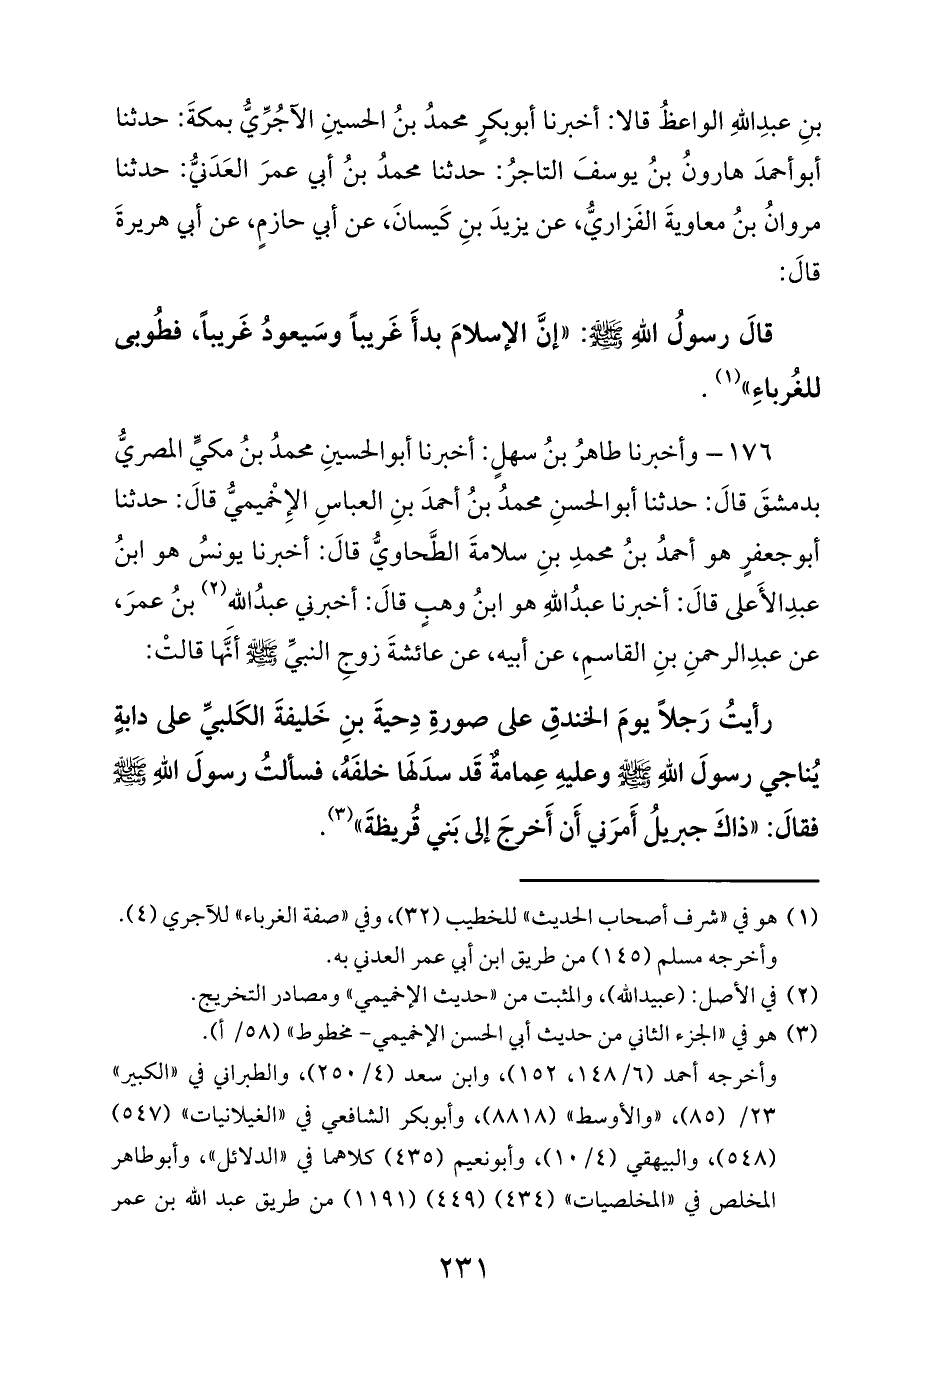 بنِ عبدِاللهِ الواعظُ قالا: أخبرنا أبوبكرٍ محمدُ بنُ الحسينِ الآجُرِّيُّ بمكةَ: حدثنا
أبوأحمدَ هارونُ بنُ يوسفَ التاجرُ: حدثنا محمدُ بنُ أبي عمرَ العَدَنيُّ: حدثنا
مروانُ بنُ معاويةَ الفَزاريُّ، عن يزيدَ بنِ كَيسانَ، عن أبي حازمٍ، عن أبي هريرةَ
قالَ:
قالَ رسولُ اللهِ ﷺ: «إنَّ الإسلامَ بدأَ غَريباً وسَيعودُ غَريباً، فطُوبى
للغُرباءِ»(١) .
١٧٦ – وأخبرنا طاهرُ بنُ سهلٍ: أخبرنا أبوالحسينِ محمدُ بنُ مكيٍّ المصريُّ
بدمشقَ قالَ: حدثنا أبوالحسنِ محمدُ بنُ أحمدَ بنِ العباسِ الإِخْميميُّ قالَ: حدثنا
أبوجعفرٍ هو أحمدُ بنُ محمدِ بنِ سلامةَ الطَّحاويُّ قالَ: أخبرنا يونسُ هو ابنُ
عبدِالأَعلى قالَ: أخبرنا عبدُاللهِ هو ابنُ وهبٍ قالَ: أخبرني عبدُاللهِ(٢) بنُ عمرَ،
عن عبدِالرحمنِ بنِ القاسمِ، عن أبيه، عن عائشةَ زوجِ النبيِّ ﷺ أنَّها قالتْ:
رأيتُ رَجلاً يومَ الخندقِ على صورةِ دِحيةَ بنِ خَليفةَ الكَلبيِّ على دابةٍ
يُناجي رسولَ اللهِ ﷺ وعليهِ عِمامةٌ قَد سدَلَها خلفَهُ، فسألتُ رسولَ اللهِ ﷺ
فقالَ: «ذاكَ جبريلُ أَمرَني أَن أَخرجَ إلى بَني قُريظةَ»(٣).
(١) هو في «شرف أصحاب الحديث» للخطيب (٣٢)، وفي «صفة الغرباء» للآجري (٤).
وأخرجه مسلم (١٤٥) من طريق ابن أبي عمر العدني به.
(٢) في الأصل: (عبيدالله)، والمثبت من «حديث الإخميمي» ومصادر التخريج.
(٣) هو في «الجزء الثاني من حديث أبي الحسن الإخميمي- مخطوط» (٥٨/ أ).
وأخرجه أحمد (٦/ ١٤٨، ١٥٢)، وابن سعد (٤/ ٢٥٠)، والطبراني في «الكبير»
٢٣/ (٨٥)، «والأوسط» (٨٨١٨)، وأبوبكر الشافعي في «الغيلانيات» (٥٤٧)
(٥٤٨)، والبيهقي (٤/ ١٠)، وأبونعيم (٤٣٥) كلاهما في «الدلائل»، وأبوطاهر
المخلص في «المخلصيات» (٤٣٤) (٤٤٩) (١١٩١) من طريق عبد الله بن عمر
٢٣١